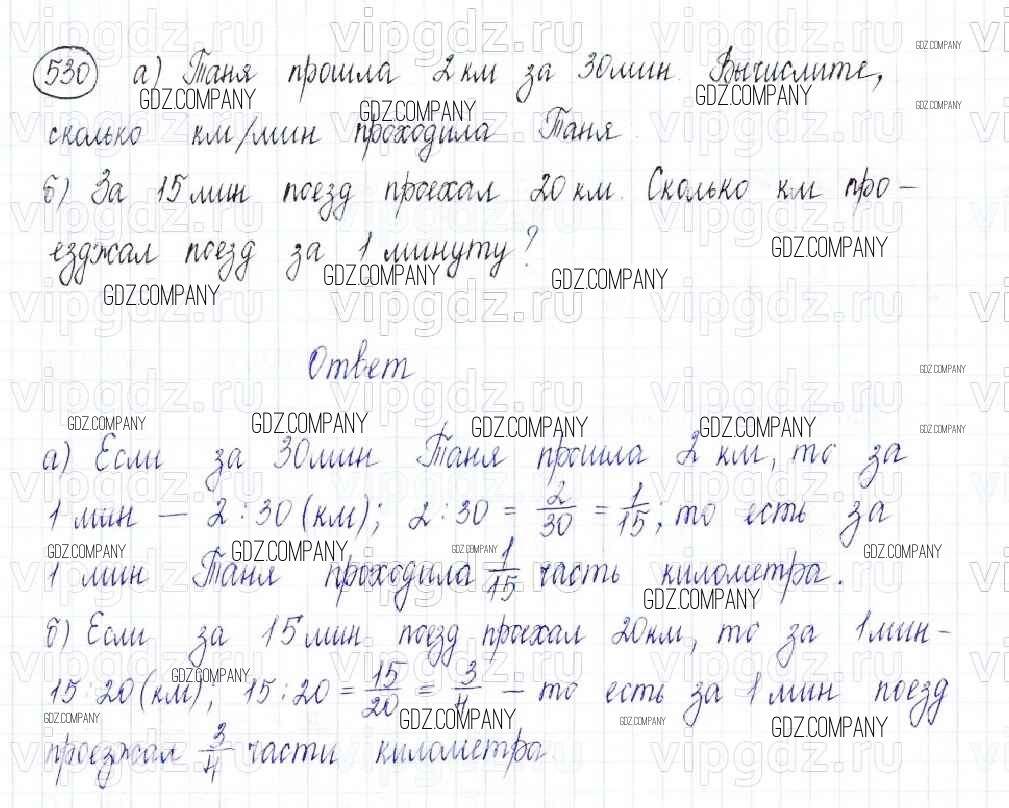 530 а) Таня прошла 2 км за 30 мин. Вычислите,
сколько км/мин проходила Таня.
б) За 15 мин поезд проехал 20 км. Сколько км про-
езджал поезд за 1 минуту?
Ответ
а) Если за 30 мин Таня прошла 2 км, то за
1 мин — 2 : 30 (км); 2 : 30 = 2/30 = 1/15; то есть за
1 мин Таня проходила 1/15 часть километра.
б) Если за 15 мин поезд проехал 20 км, то за 1 мин -
15 : 20 (км); 15 : 20 = 15/20 = 3/4 — то есть за 1 мин поезд
проезжал 3/4 части километра.
vipgdz.ru
GDZ.COMPANY